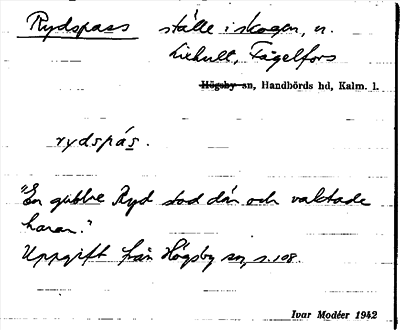 Rydspass ställe i skogen, n.
Liehult, Fågelfors
Högsby sn, Handbörds hd, Kalm. l.
rydspás.
"En gubbe Ryd stod där och vaktade
haran."
Uppgift från Högsby sn, s. 108.
Ivar Modéer 1942